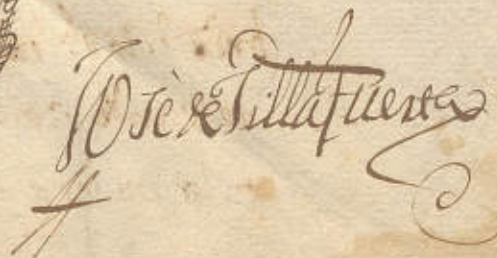 Josè de Villafuerte